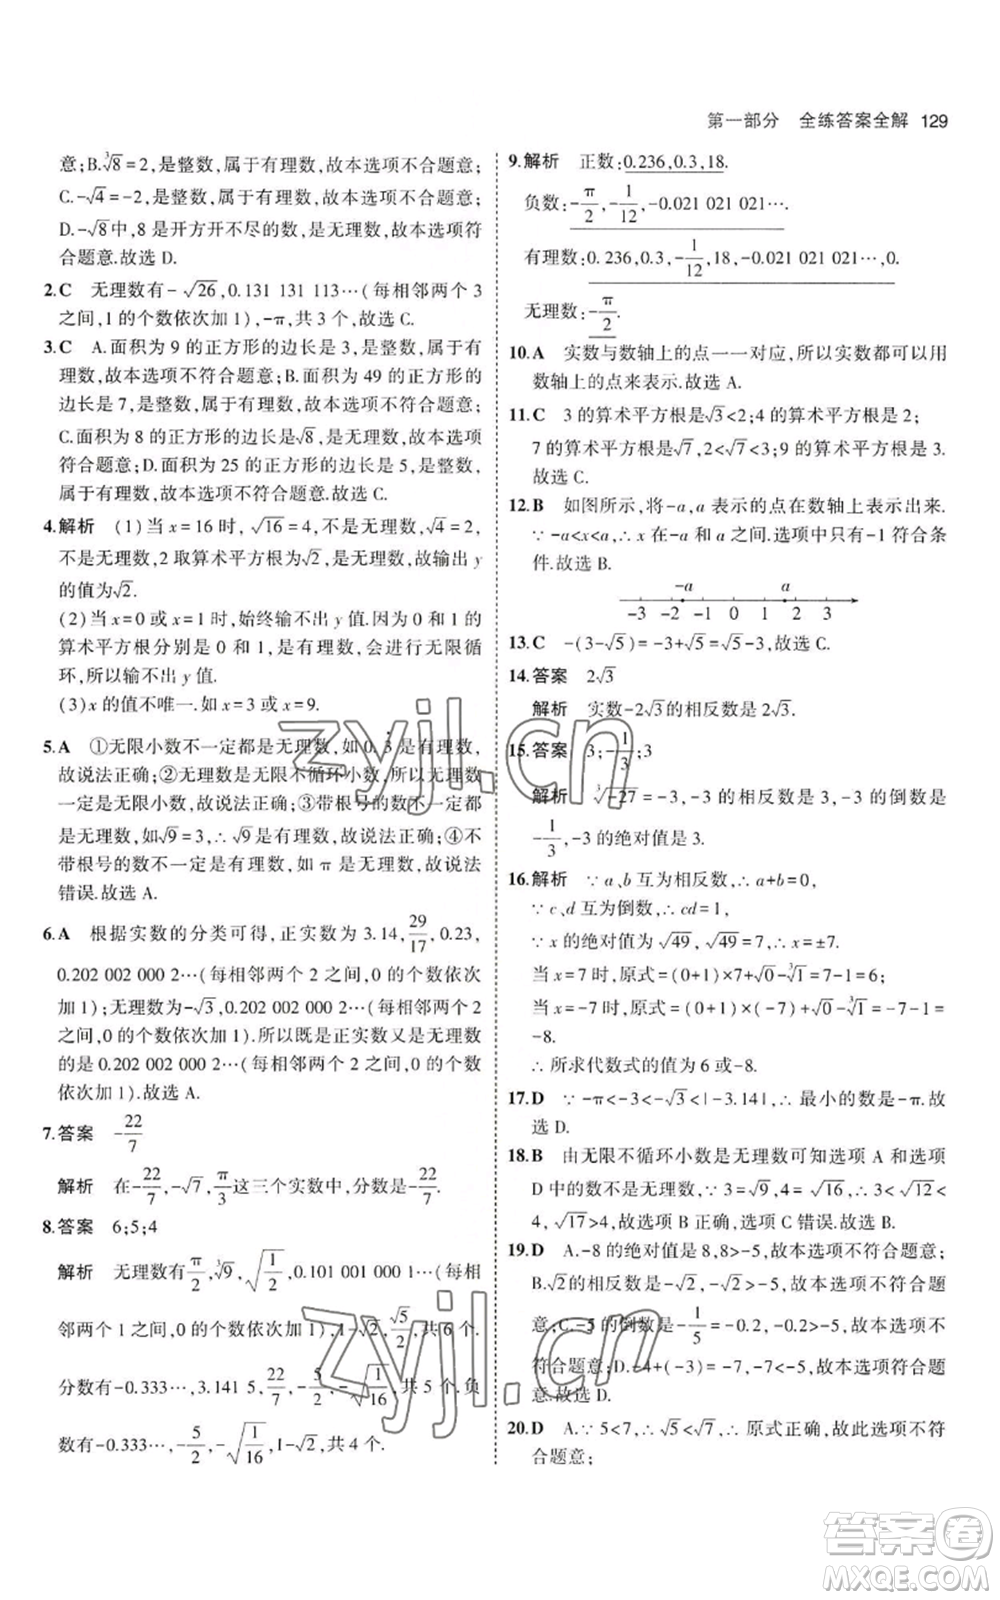 第一部分 全练答案全解 129
意;B.∛8=2,是整数,属于有理数,故本选项不合题意;
C.-√4=-2,是整数,属于有理数,故本选项不合题意;
D.-√8中,8是开方开不尽的数,是无理数,故本选项符
合题意.故选 D.
2.C 无理数有-√26,0.131 131 113…(每相邻两个 3
之间,1 的个数依次加 1),-π,共 3 个.故选 C.
3.C A.面积为 9 的正方形的边长是 3,是整数,属于有
理数,故本选项不符合题意;B.面积为 49 的正方形的
边长是 7,是整数,属于有理数,故本选项不符合题意;
C.面积为 8 的正方形的边长是√8,是无理数,故本选项
符合题意;D.面积为 25 的正方形的边长是 5,是整数,
属于有理数,故本选项不符合题意.故选 C.
4.解析 (1)当 x=16 时,√16=4,不是无理数,√4=2,
不是无理数,2 取算术平方根为√2,是无理数,故输出 y
的值为√2.
(2)当 x=0或 x=1 时,始终输不出 y 值.因为 0 和 1 的
算术平方根分别是 0 和 1,是有理数,一直进行无限循
环,所以输不出 y 值.
(3)x 的值不唯一.如 x=3 或 x=9.
5.A ①无限小数不一定都是无理数,如 0.3̇是有理数,
故说法正确;②无理数是无限不循环小数,所以无理数
一定是无限小数,故说法正确;③带根号的数不一定都
是无理数,如√9=3,∴√9是有理数,故说法正确;④不
带根号的数不一定是有理数,如 π 是无理数,故说法
错误.故选 A.
6.A 根据实数的分类可得,正实数为 3.14,29/17,0.23,
0.202 002 000 2…(每相邻两个 2 之间,0 的个数依次
加 1);无理数为-√3,0.202 002 000 2…(每相邻两个 2
之间,0 的个数依次加 1).所以既是正实数又是无理数
的是 0.202 002 000 2…(每相邻两个 2 之间,0 的个数
依次加 1).故选 A.
7.答案 -22/7
解析 在-22/7,-√7,π/3这三个实数中,分数是-22/7.
8.答案 6;5;4
解析 无理数有π/2,∛9,√(1/2),0.101 001 000 1…(每相
邻两个 1 之间,0 的个数依次加 1),1-√2,√5/2,共 6 个.
分数有-0.333…,3.141 5,22/7,-5/2,-√(1/16),共 5 个.负
数有-0.333…,-5/2,-√(1/16),1-√2,共 4 个.
9.解析 正数:0.236,0.3,18.
负数:-π/2,-1/12,-0.021 021 021….
有理数:0.236,0.3,-1/12,18,-0.021 021 021…,0.
无理数:-π/2.
10.A 实数与数轴上的点一一对应,所以实数都可以用
数轴上的点来表示.故选 A.
11.C 3 的算术平方根是√3<2;4 的算术平方根是 2;
7 的算术平方根是√7,2<√7<3;9 的算术平方根是 3.
故选 C.
12.B 如图所示,将-a,a 表示的点在数轴上表示出来.
∵-a<x<a,∴x 在-a 和 a 之间.选项中只有-1 符合条
件.故选 B.
-a a
-3 -2 -1 0 1 2 3
13.C -(3-√5)=-3+√5=√5-3,故选 C.
14.答案 2√3
解析 实数-2√3的相反数是 2√3.
15.答案 3;-1/3;3
解析 ∛-27=-3,-3 的相反数是 3,-3 的倒数是
-1/3,-3 的绝对值是 3.
16.解析 ∵a、b 互为相反数,∴a+b=0,
∵c、d 互为倒数,∴cd=1,
∵x 的绝对值为√49,√49=7,∴x=±7.
当 x=7 时,原式=(0+1)×7+√0-∛1=7-1=6;
当 x=-7 时,原式=(0+1)×(-7)+√0-∛1=-7-1=
-8.
∴所求代数式的值为 6 或-8.
17.D ∵-π<-3<-√3<|-3.14|,∴最小的数是-π.故
选 D.
18.B 由无限不循环小数是无理数可知选项 A 和选项
D 中的数不是无理数,∵3=√9,4=√16,∴3<√12<
4,√17>4,故选项 B 正确,选项 C 错误.故选 B.
19.D A.-8 的绝对值是 8,8>-5,故本选项不符合题意;
B.√2的相反数是-√2,-√2>-5,故本选项不符合题
意;C.-5 的倒数是-1/5=-0.2,-0.2>-5,故本选项不
符合题意;D.-4+(-3)=-7,-7<-5,故本选项符合题
意.故选 D.
20.D A.∵5<7,∴√5<√7,∴原式正确,故此选项不符
合题意;
zyjl.cn
zyjl.cn
答案圈
MXQE.COM